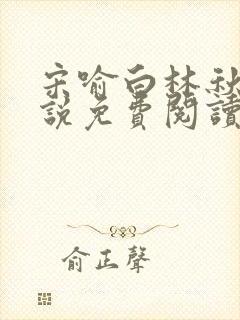 宋喻白林秋
說免費閱讀
俞正聲